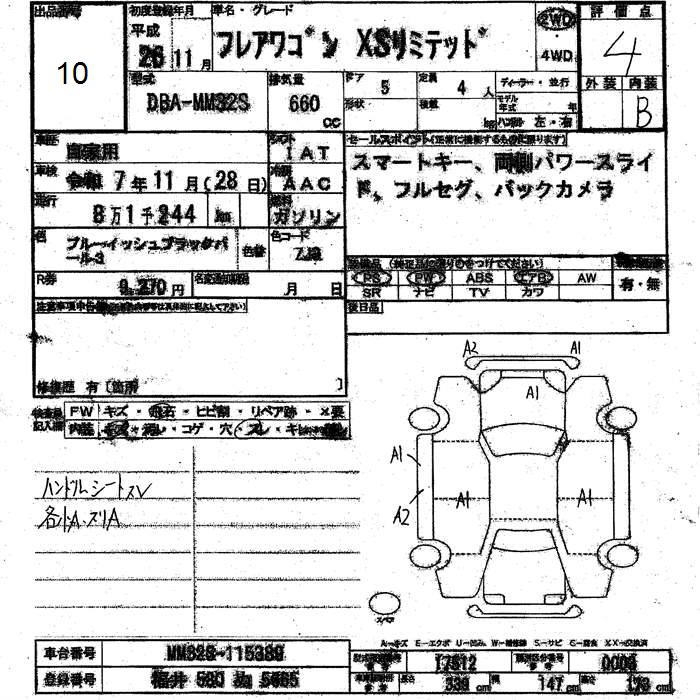 出品番号
10
初度登録年月
平成
26 11 月
車名・グレード
フレアワゴン XSリミテッド
2WD
4WD
評価点
4
外装 内装
B
型式
DBA-MM32S
排気量
660
cc
ドア
5
形状
定員
4 人
積載
kg
ディーラー・並行
モデル年式 年
ハンドル 左・右
車歴
自家用
シフト
IAT
車検
令和 7 年 11 月(28 日)
冷房
AAC
走行
8 万 1 千 244 km
燃料
ガソリン
色
ブルーイッシュブラックパール3
色替
色コード
ZJ3
R券
9,270 円
名変期限
月 日
セールスポイント(正常に機能するものに限ります)
スマートキー、両側パワースライ
ド、フルセグ、バックカメラ
装備品
PS PW ABS エアB AW
SR ナビ TV カワ
有・無
後日品
注意事項申告欄
修復歴 有〔箇所 〕
検査員記入欄
FW キズ・飛石・ヒビ割・リペア跡・X要
内装 キズ・汚レ・コゲ・穴・スレ
ハンドル シート スレ
A2 A1
A1
A1
A2
A1 A1
スペア
A－キズ E－エクボ U－凹み W－補修跡 S－サビ C－腐食 XX－交換済
車台番号 MM32S-115380
型式指定番号 17512
類別区分番号 0003
登録番号 福井 580
長さ 339 cm 幅 147 cm 高さ 173 cm